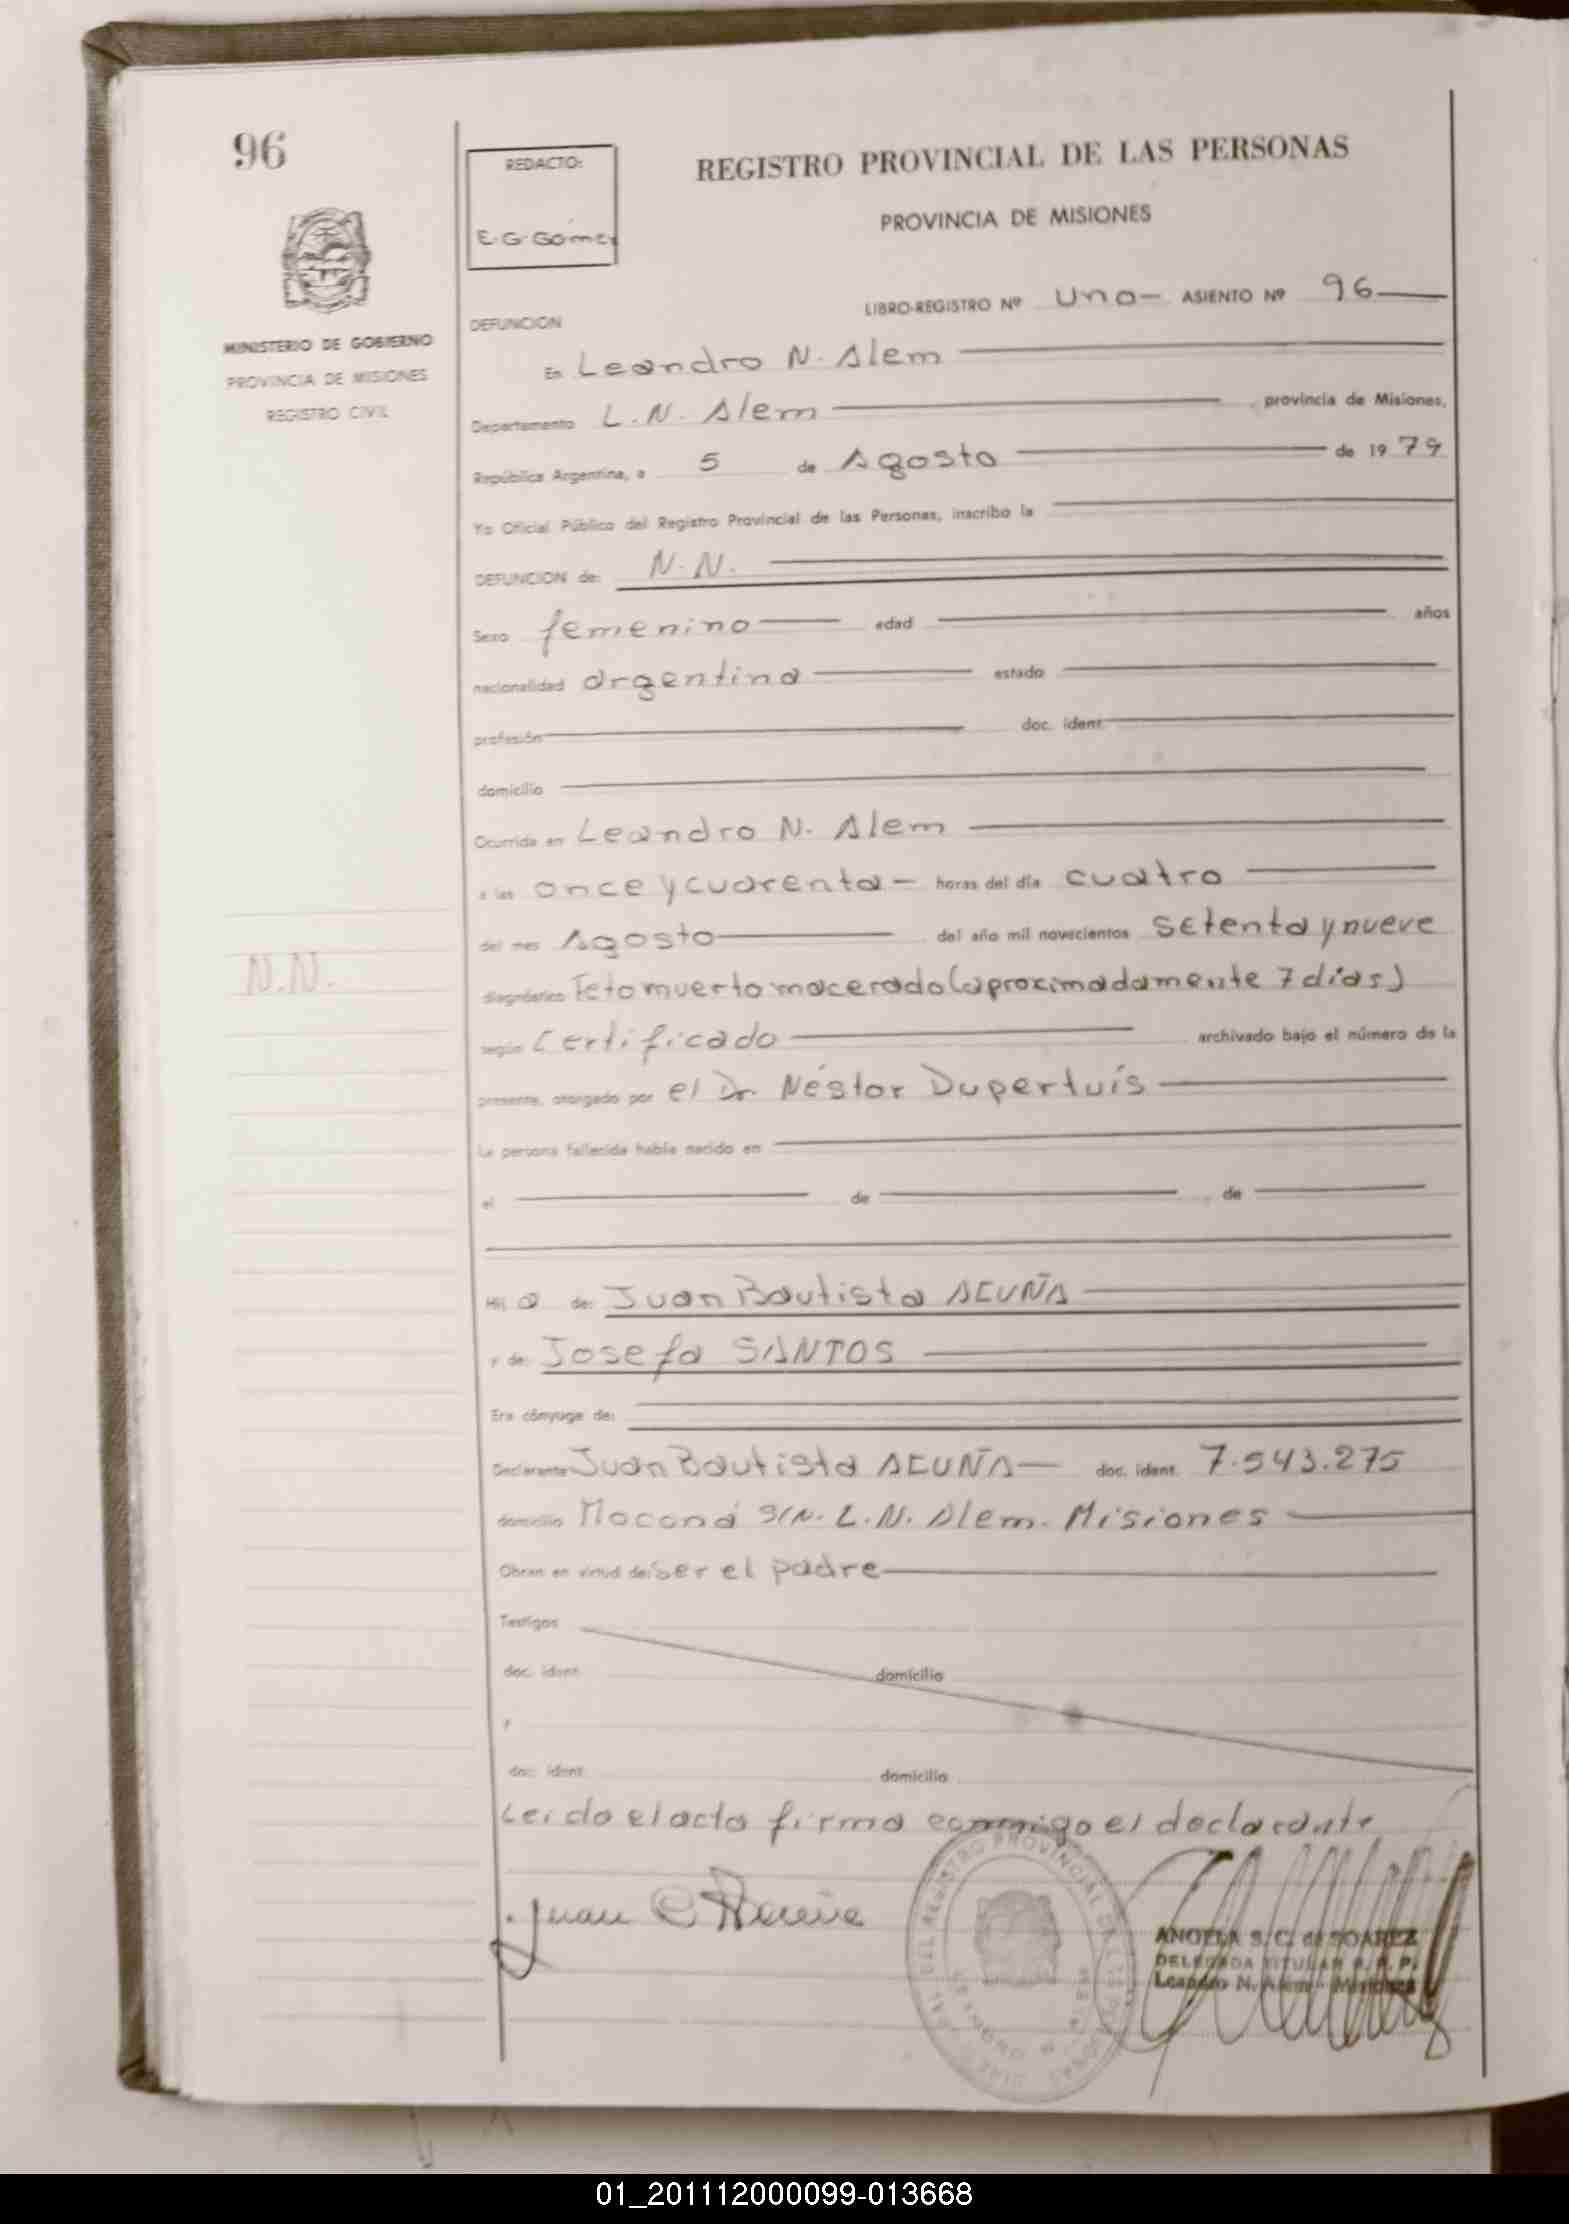 96
REDACTO:
E. G. Gómez
REGISTRO PROVINCIAL DE LAS PERSONAS
PROVINCIA DE MISIONES
MINISTERIO DE GOBIERNO
PROVINCIA DE MISIONES
REGISTRO CIVIL
LIBRO-REGISTRO Nº Uno- ASIENTO Nº 96
DEFUNCION
En Leandro N. Alem
Departamento L. N. Alem provincia de Misiones,
República Argentina, a 5 de Agosto de 19 79
Yo Oficial Público del Registro Provincial de las Personas, inscribo la
DEFUNCION de: N. N.
Sexo femenino edad años
nacionalidad argentina estado
profesión doc. ident.
domicilio
Ocurrida en Leandro N. Alem
a las once y cuarenta - horas del día cuatro
del mes Agosto del año mil novecientos setenta y nueve
N.N.
diagnóstico Feto muerto macerado (aproximadamente 7 días)
según Certificado archivado bajo el número de la
presente, otorgado por el Dr. Néstor Dupertuís
La persona fallecida había nacido en
el de de
Hij a de: Juan Bautista ACUÑA
y de: Josefa SANTOS
Era cónyuge de:
Declarante Juan Bautista ACUÑA doc. ident. 7.543.275
domicilio Moconá S/N. L. N. Alem. Misiones
Obran en virtud de: ser el padre
Testigos
doc. ident. domicilio
y
doc. ident. domicilio
Leído el acta firma conmigo el declarante
Juan
ANGELA S. C. de SOAREZ
DELEGADA TITULAR R. P. P.
Leandro N. Alem - Misiones
01_201112000099-013668